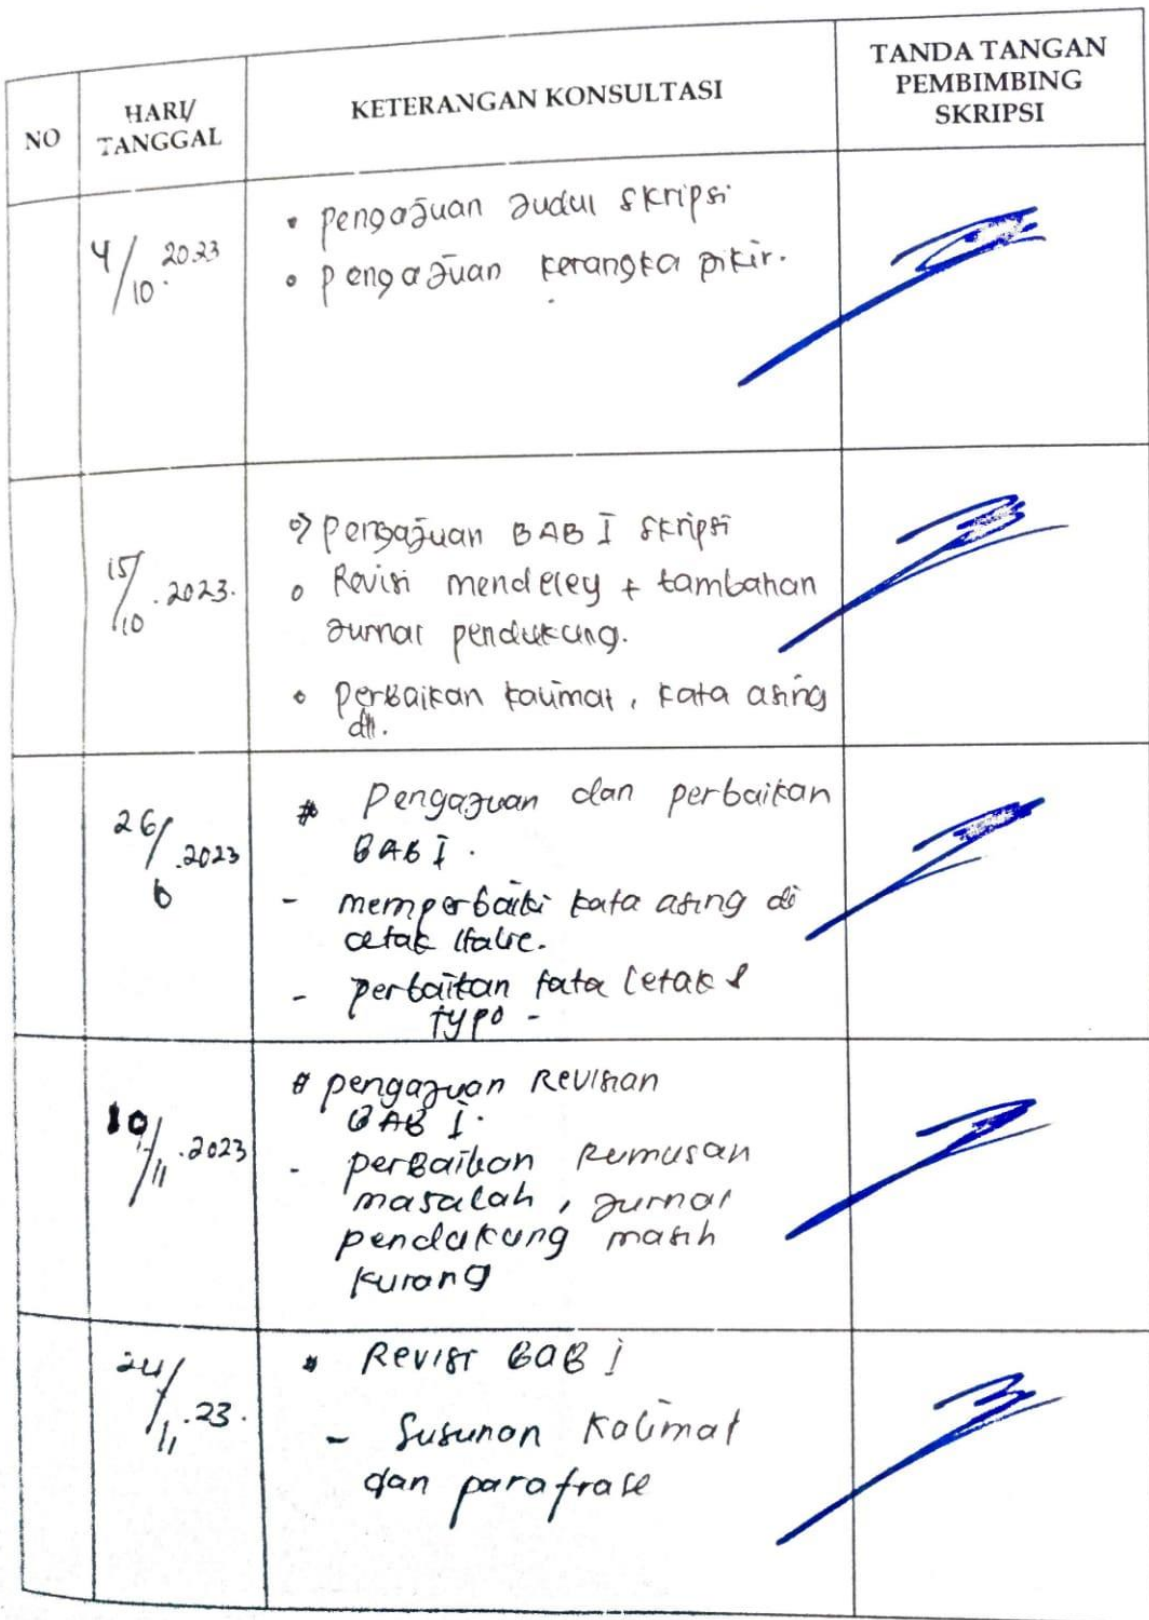 NO
HARI/
TANGGAL
KETERANGAN KONSULTASI
TANDA TANGAN
PEMBIMBING
SKRIPSI
4/10. 2023
• pengajuan Judul skripsi
• pengajuan kerangka pikir.
15/10. 2023.
Pengajuan BAB I skripsi
o Revisi mendeley + tambahan
Jurnal pendukung.
• perbaikan kalimat, kata asing
dll.
26/ .2023
# Pengajuan dan perbaikan
BAB I.
- memperbaiki kata asing di
cetak Italic.
- perbaikan tata letak &
typo -
10/11 .2023
# pengajuan Revisian
BAB I.
- perbaikan Rumusan
masalah, Jurnal
pendukung masih
kurang
24/11.23.
* Revisi BAB I
- Susunan Kalimat
dan parafrase